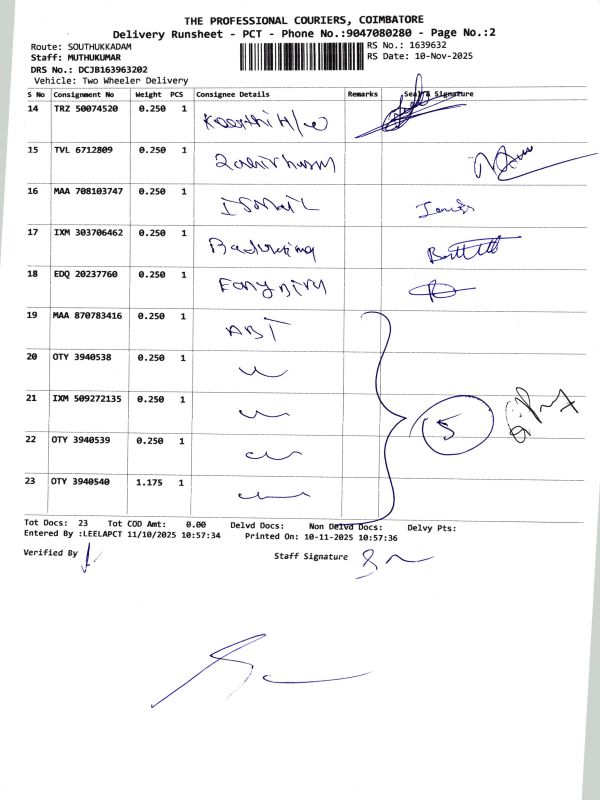 THE PROFESSIONAL COURIERS, COIMBATORE
Delivery Runsheet - PCT - Phone No.:9047080280 - Page No.:2
Route: SOUTHUKKADAM
RS No.: 1639632
Staff: MUTHUKUMAR
RS Date: 10-Nov-2025
DRS No.: DCJB163963202
Vehicle: Two Wheeler Delivery
S No Consignment No Weight PCS Consignee Details Remarks Seal & Signature
14 TRZ 50074520 0.250 1
15 TVL 6712809 0.250 1
16 MAA 708103747 0.250 1 ISMAIL
17 IXM 303706462 0.250 1
18 EDQ 20237760 0.250 1
19 MAA 870783416 0.250 1 ABT
20 OTY 3940538 0.250 1
21 IXM 509272135 0.250 1 5
22 OTY 3940539 0.250 1
23 OTY 3940540 1.175 1
Tot Docs: 23 Tot COD Amt: 0.00 Delvd Docs: Non Delvd Docs: Delvy Pts:
Entered By :LEELAPCT 11/10/2025 10:57:34 Printed On: 10-11-2025 10:57:36
Verified By Staff Signature